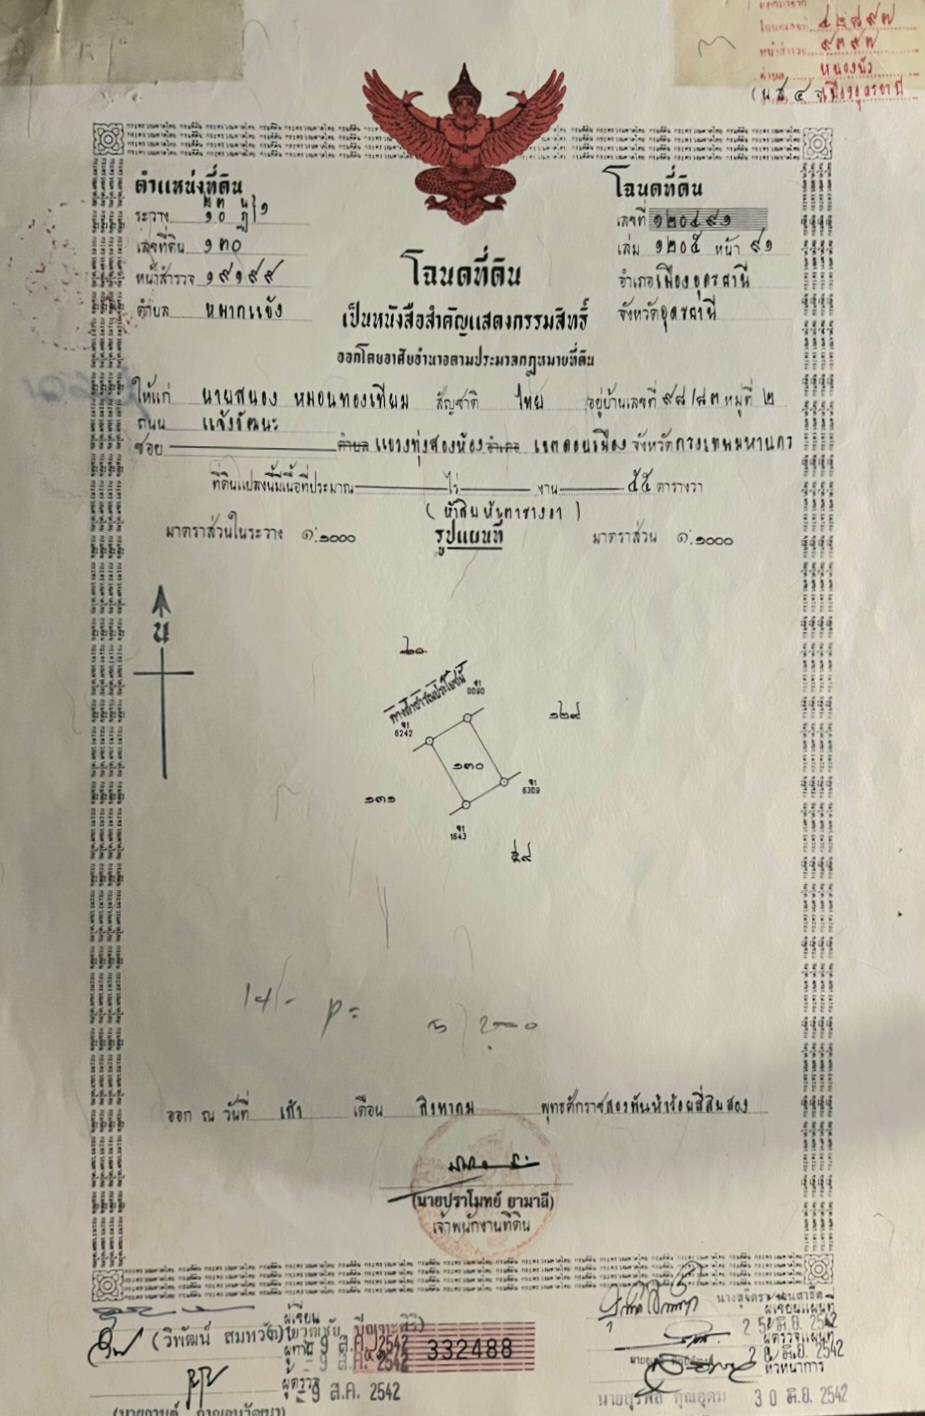 โฉนดเลขที่ ๔๒๘๙๗
หน้าสำรวจ ๙๓๙๗
ตำบล หนองบัว
(น.ส. ๔ จ) เมืองอุดรธานี
ตำแหน่งที่ดิน
ระวาง
เลขที่ดิน ๑๓๐
หน้าสำรวจ ๑๙๑๙๙
ตำบล หมากแข้ง
โฉนดที่ดิน
เลขที่ ๑๒๐๔๙๑
เล่ม ๑๒๐๕ หน้า ๙๑
อำเภอเมืองอุดรธานี
จังหวัดอุดรธานี
โฉนดที่ดิน
เป็นหนังสือสำคัญแสดงกรรมสิทธิ์
ออกโดยอาศัยอำนาจตามประมวลกฎหมายที่ดิน
ให้แก่ นายสนอง หมอนทองเทียม สัญชาติ ไทย อยู่บ้านเลขที่ ๙๘/๘๓ หมู่ที่ ๒
ถนน แจ้งวัฒนะ
ซอย ตำบล แขวงทุ่งสองห้อง อำเภอ เขตดอนเมือง จังหวัดกรุงเทพมหานคร
ที่ดินแปลงนี้มีเนื้อที่ประมาณ ไร่ งาน ๕๕ ตารางวา
(ห้าสิบห้าตารางวา)
มาตราส่วนในระวาง ๑:๑๐๐๐ รูปแผนที่ มาตราส่วน ๑:๑๐๐๐
น
๖๐
ทางสาธารณประโยชน์
6242
๑๒๙
๑๓๐
๑๓๑
6309
1643
๕๙
ออก ณ วันที่ เก้า เดือน สิงหาคม พุทธศักราชสองพันห้าร้อยสี่สิบสอง
(นายปราโมทย์ ยามาลี)
เจ้าพนักงานที่ดิน
ผู้เขียน
(วิพัฒน์ สมหวัง)
9 ส.ค. 2542
332488
ผู้ตรวจ
9 ส.ค. 2542
ผู้เขียนแผนที่
ผู้ตรวจแผนที่
2542
หัวหน้าการ
30 มิ.ย. 2542